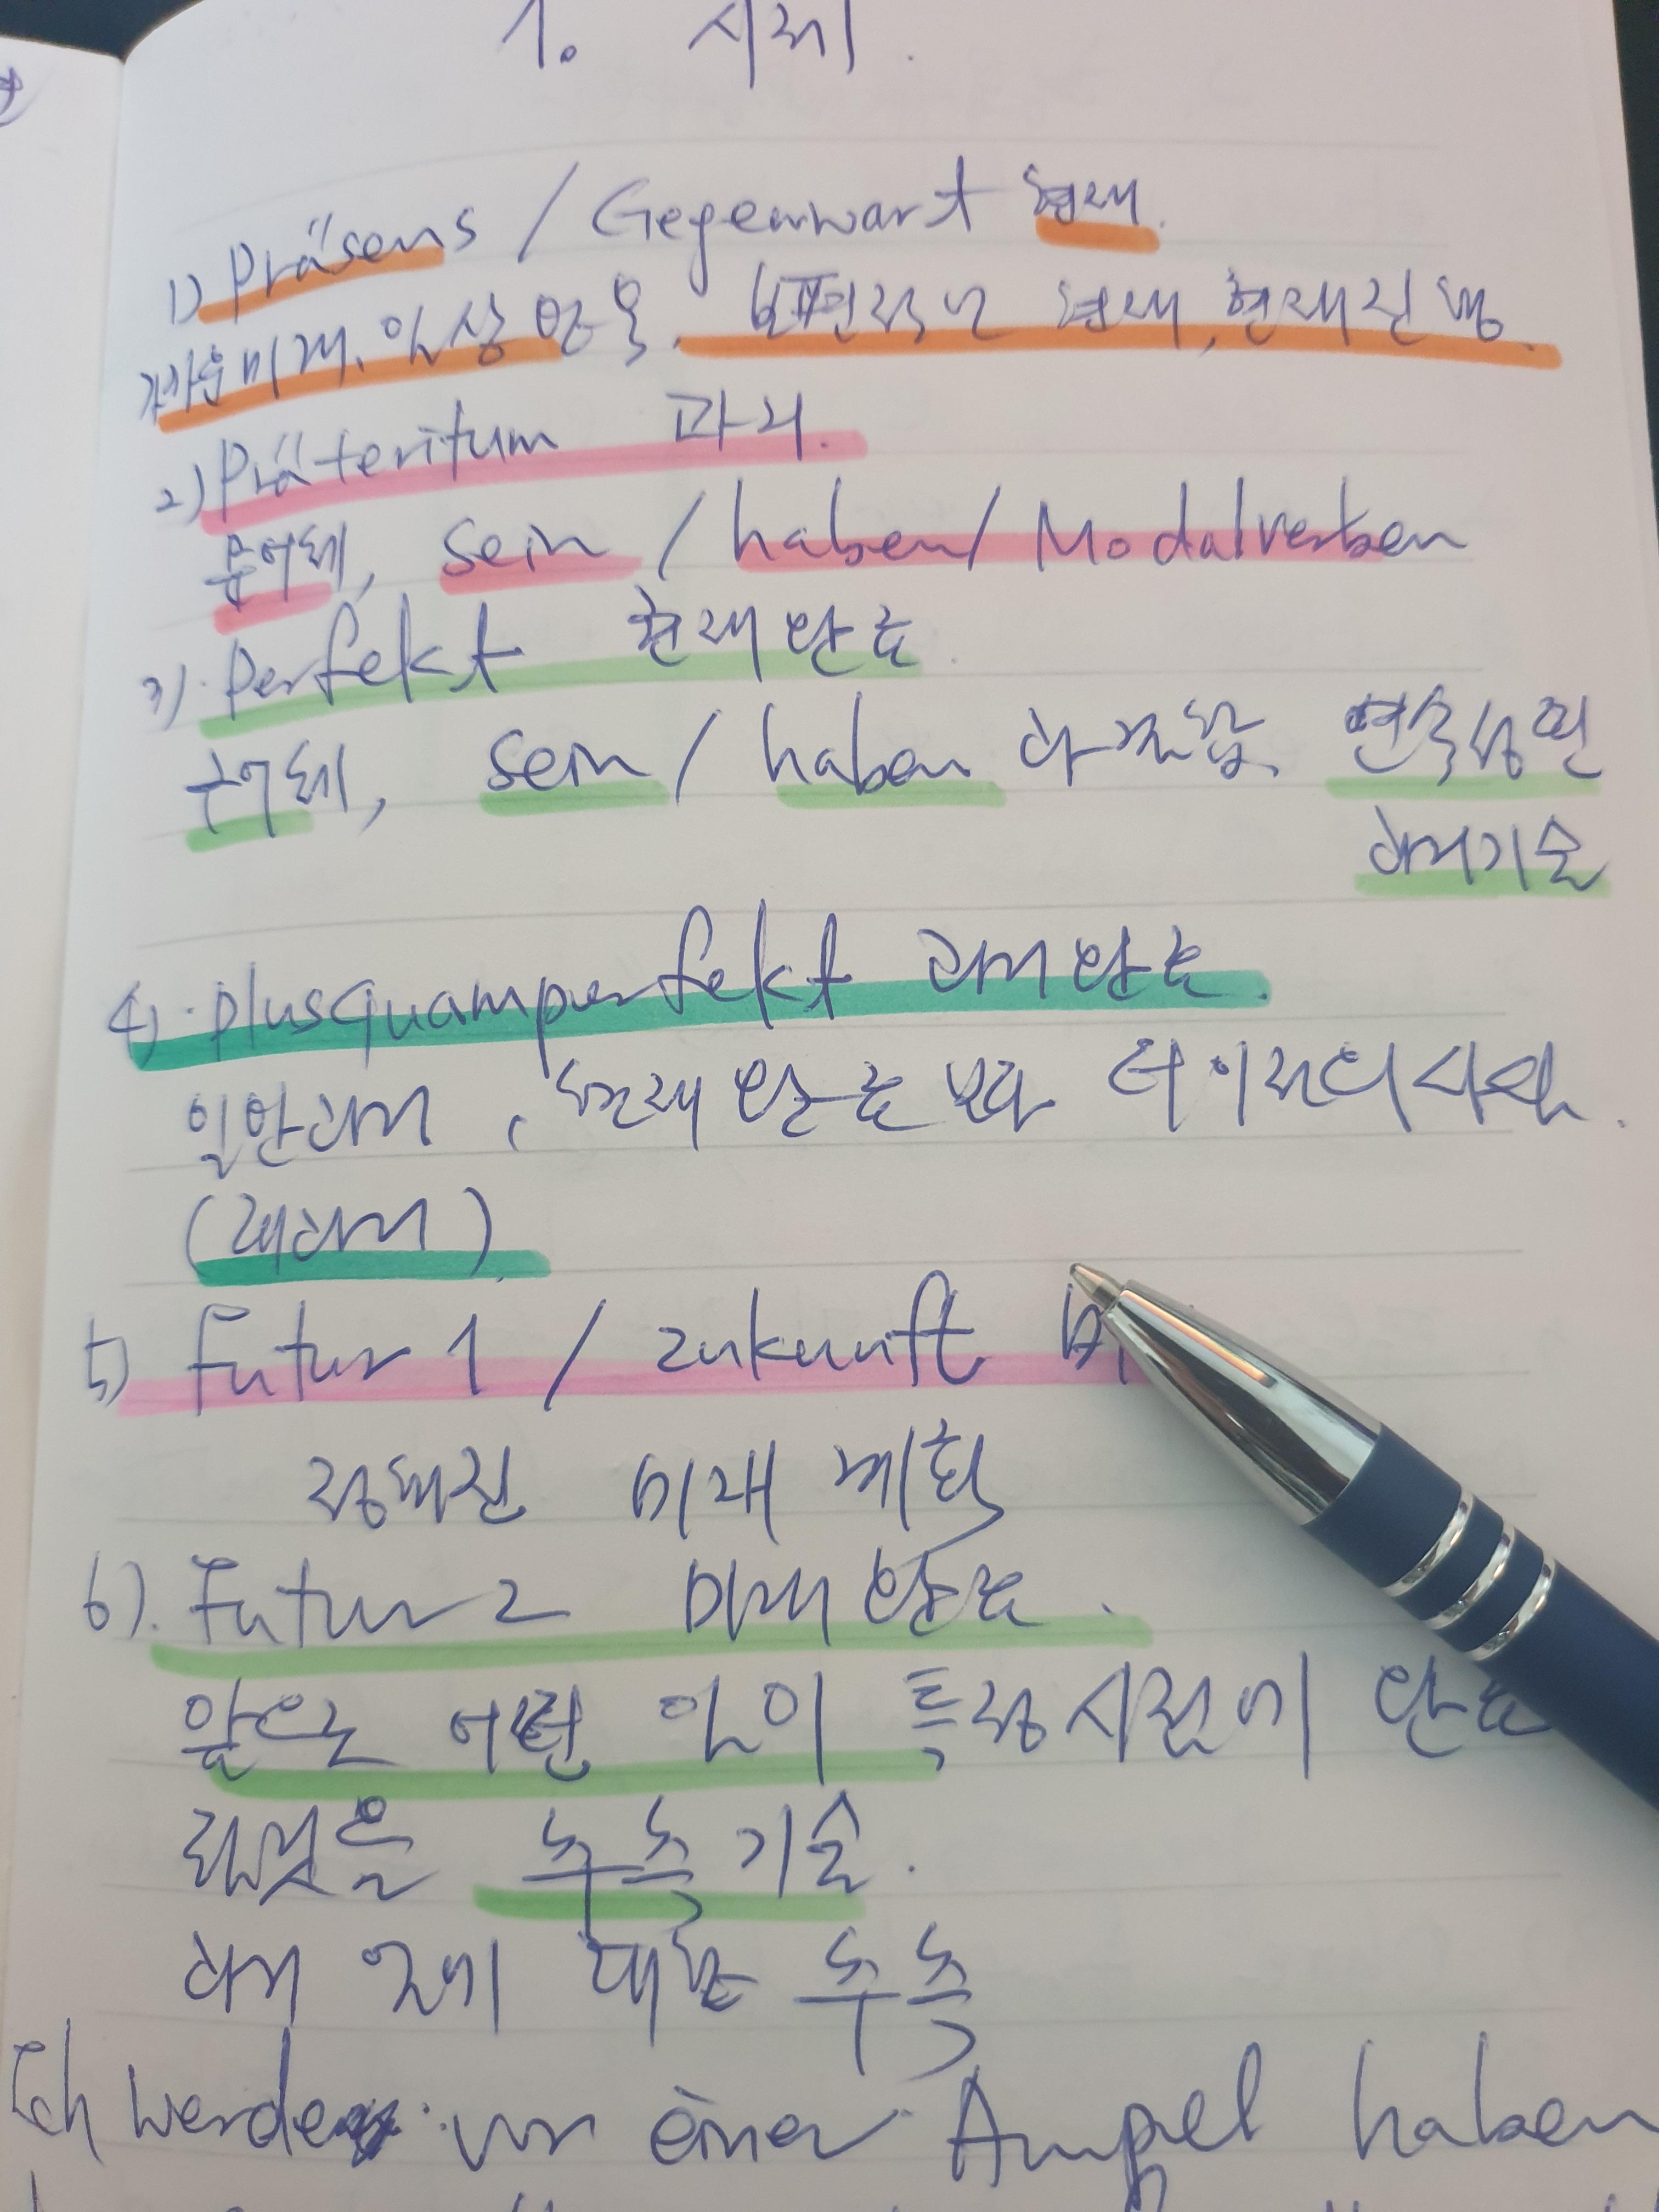 1. 시제.
1) Präsens / Gegenwart 현재.
가까운 미래, 일상생활, 보편적인 현재, 현재진행.
2) Präteritum 과거.
문어체, sein / haben / Modalverben
3). Perfekt 현재완료.
구어체, sein / haben 와 조합, 연속성인
과거기술
4). plusquamperfekt 과거완료.
일반과거, 현재완료보다 더 이전의 시제.
(대과거).
5) Futur 1 / zukunft
정해진 미래 계획
6). Futur 2 미래완료.
앞으로 어떤 일이 특정시점에 완료
되었을 추측기술.
과거 일에 대한 추측
Ich werde vor einer Ampel haben